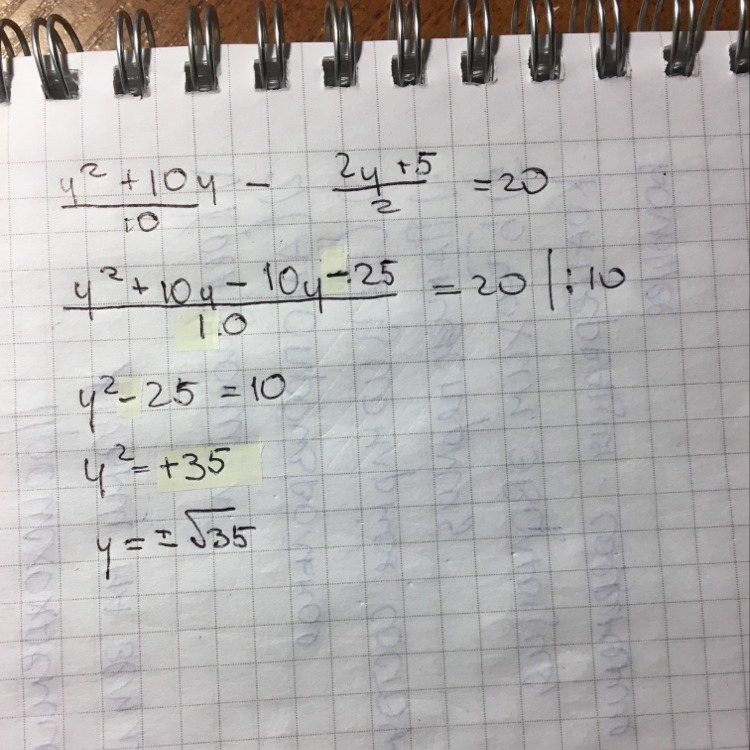 y² + 10y / 10 − 2y + 5 / 2 = 20
y² + 10y − 10y − 25 / 10 = 20 | : 10
y² − 25 = 10
y² = +35
y = ± √35